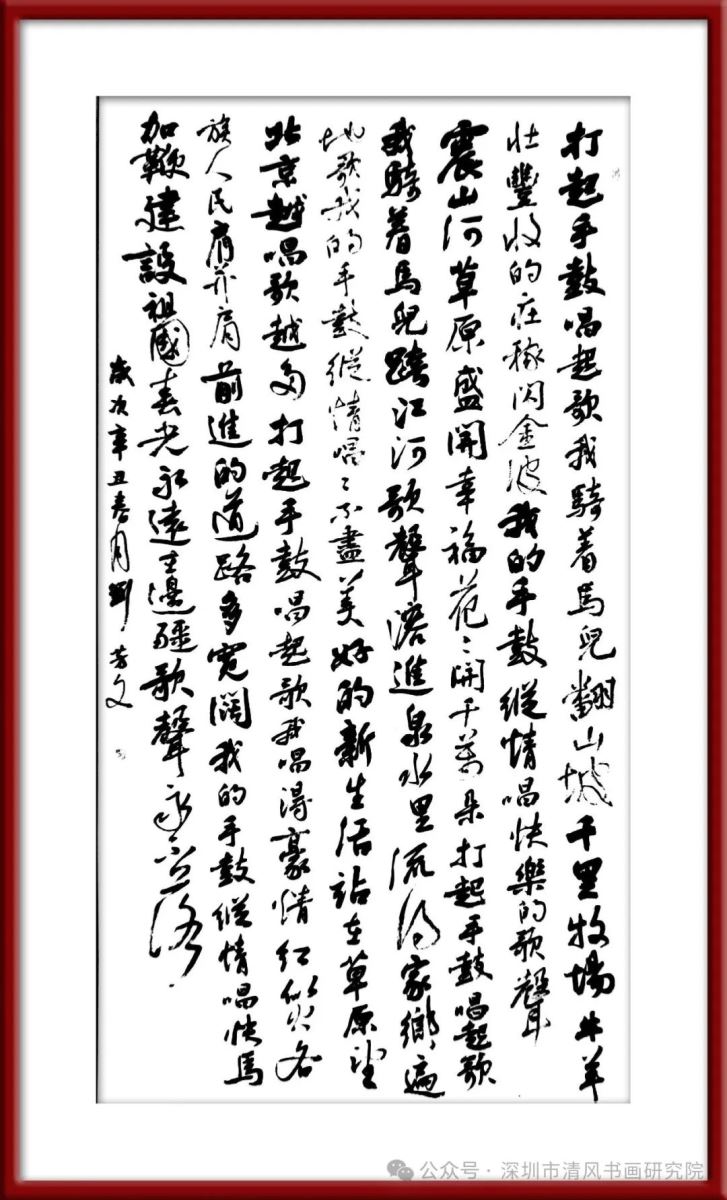 打起手鼓唱起歌我騎着馬兒翻山坡千里牧場牛羊
壮豐收的庄稼闪金波我的手鼓縱情唱快樂的歌聲
震山河草原盛開幸福花〻開千萬朵打起手鼓唱起歌
我騎着馬兒跨江河歌聲溶進泉水里流得家鄉遍
地歌我的手鼓縱情唱〻不盡美好的新生活站在草原望
北京越唱歌越多打起手鼓唱起歌我唱得豪情红似火各
族人民肩并肩前進的道路多宽闊我的手鼓縱情唱快馬
加鞭建設祖國春光永遠在邊疆歌聲永不落
歲次辛丑春月劉芳文
公众号·深圳市清风书画研究院